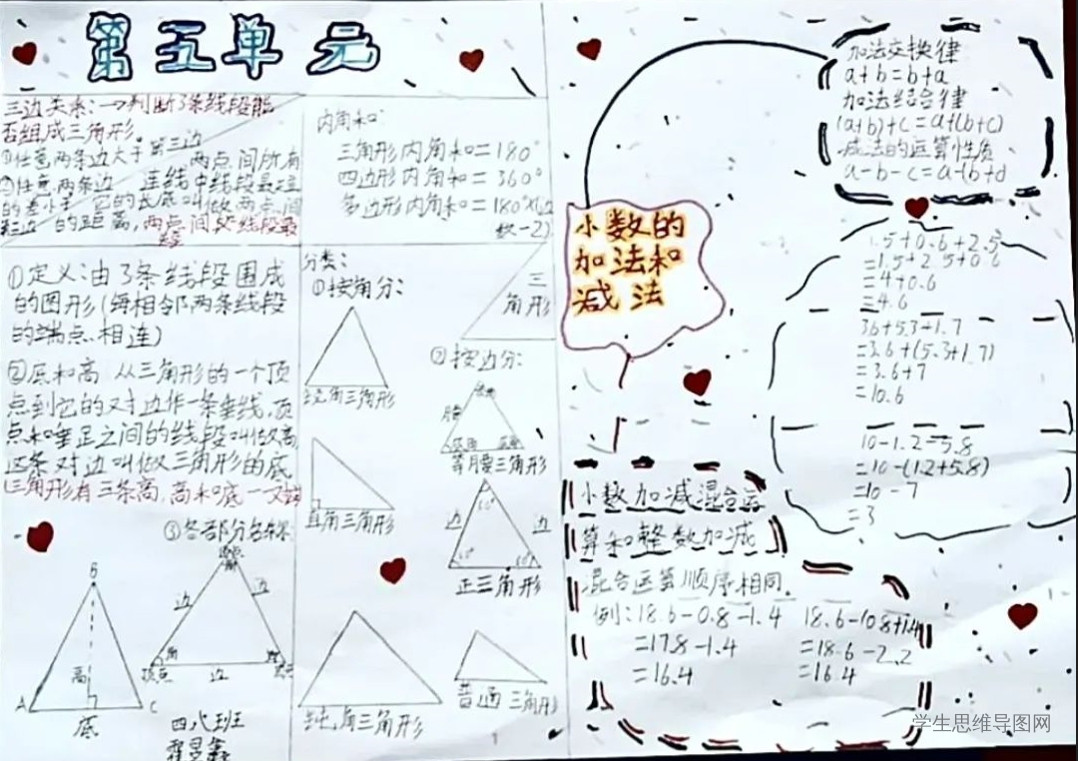 第五单元
三边关系:→判断3条线段能
否组成三角形。
①任意两条边大于第三边
②任意两条边
的差小于
两点间所有
连线中线段最短
它的长度叫做两点间
的距离,两点间线段最
内角和:
三角形内角和=180°
四边形内角和=360°
多边形内角和=180°×(边
数-2)
①定义:由3条线段围成
的图形(每相邻两条线段
的端点相连)
②底和高 从三角形的一个顶
点到它的对边作一条垂线,顶
点和垂足之间的线段叫做高
这条对边叫做三角形的底
(三角形有三条高,高和底一一对
③各部分名称
B
高
A
C
底
边
边
边
顶点
四八班
分类:
①按角分:
锐角三角形
直角三角形
钝角三角形
三
角形
②按边分:
腰
等腰三角形
边
边
60°
60°
正三角形
普通三角形
小数的
加法和
减法
加法交换律
a+b=b+a
加法结合律
(a+b)+c=a+(b+c)
减法的运算性质
a-b-c=a-(b+
1.5+0.6+2.5
=1.5+2.5+0.6
=4+0.6
=4.6
3.6+5.3+1.7
=3.6+(5.3+1.7)
=3.6+7
=10.6
10-1.2-5.8
=10-(1.2+5.8)
=10-7
=3
小数加减混合运
算和整数加减
混合运算顺序相同.
例:18.6-0.8-1.4
=17.8-1.4
=16.4
18.6-(0.8+1.4
=18.6-2.2
=16.4
学生思维导图网